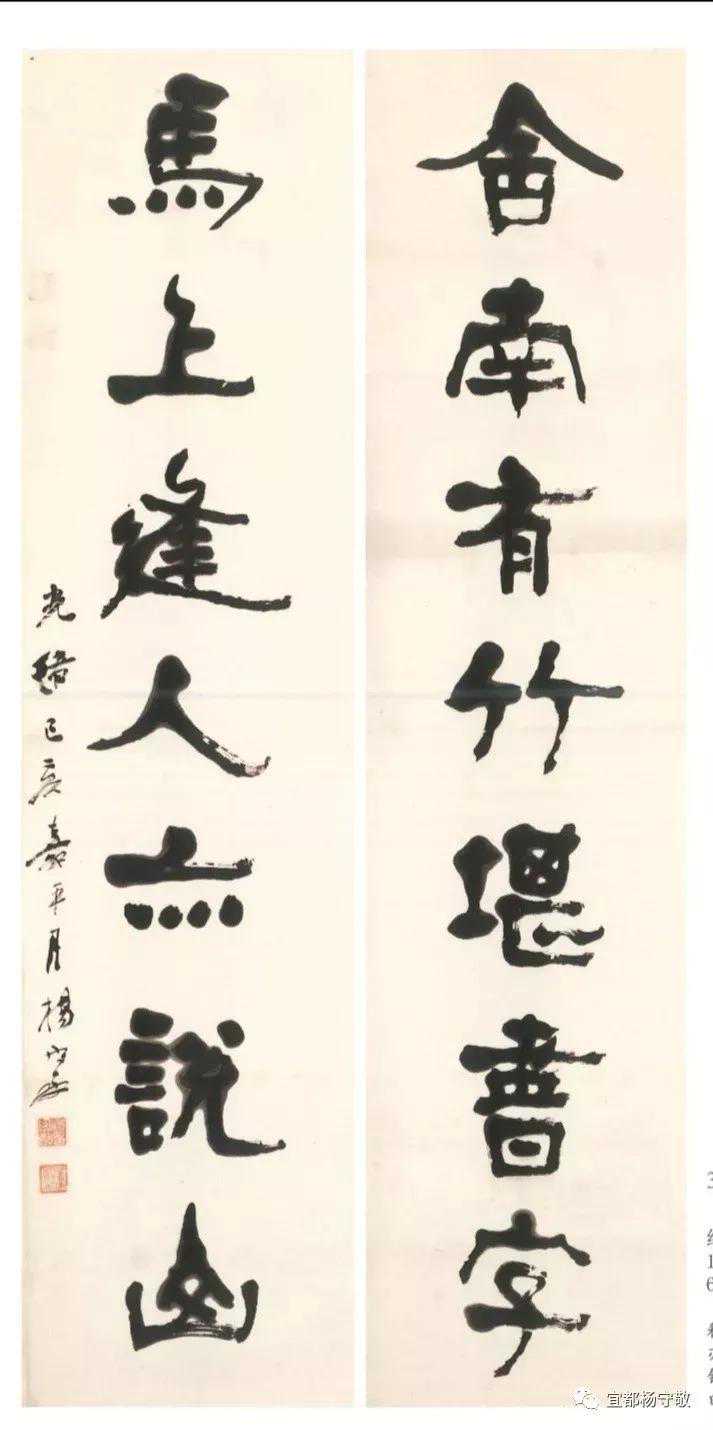 舍南有竹堪書字
馬上逢人亦說山
光緒己亥嘉平月楊守敬
宜都杨守敬